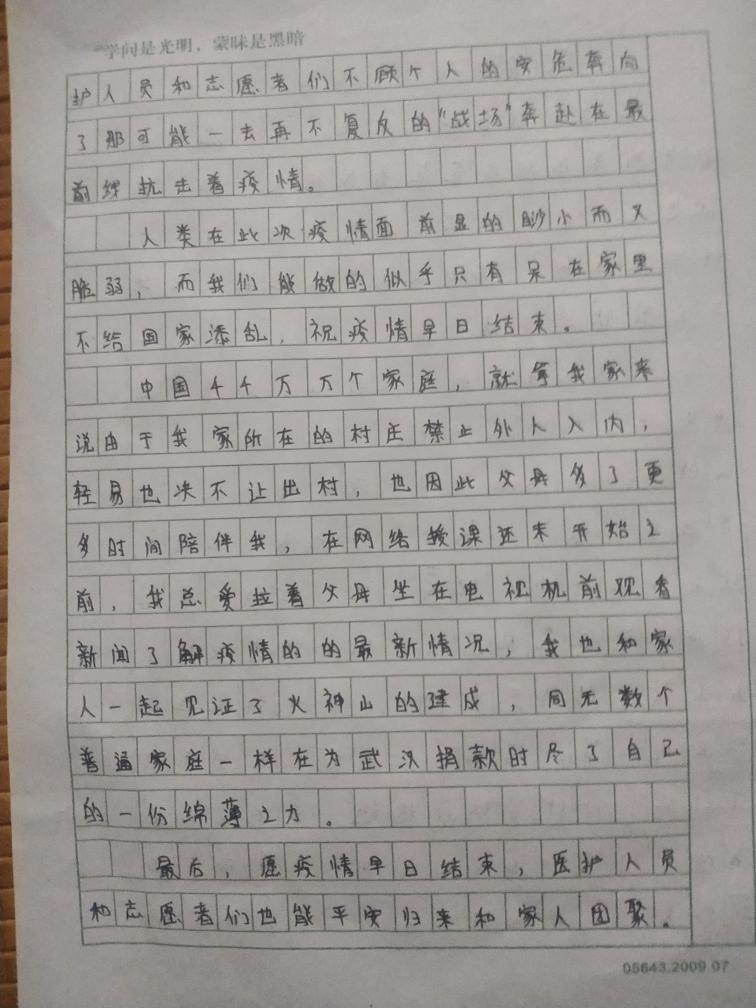 学问是光明，蒙昧是黑暗
护人员和志愿者们不顾个人的安危奔向
了那可能一去再不复反的“战场”奔赴在最
前线抗击着疫情。
人类在此次疫情面前显的眇小而又
脆弱，而我们能做的似乎只有呆在家里
不给国家添乱，祝疫情早日结束。
中国千千万万个家庭，就拿我家来
说由于我家所在的村庄禁止外人入内，
轻易也决不让出村，也因此父母多了更
多时间陪伴我，在网络授课还未开始之
前，我总爱拉着父母坐在电视机前观看
新闻了解疫情的的最新情况，我也和家
人一起见证了火神山的建成，同无数个
普通家庭一样在为武汉捐款时尽了自己
的一份绵薄之力。
最后，愿疫情早日结束，医护人员
和志愿者们也能平安归来和家人团聚。
05643.2009.07